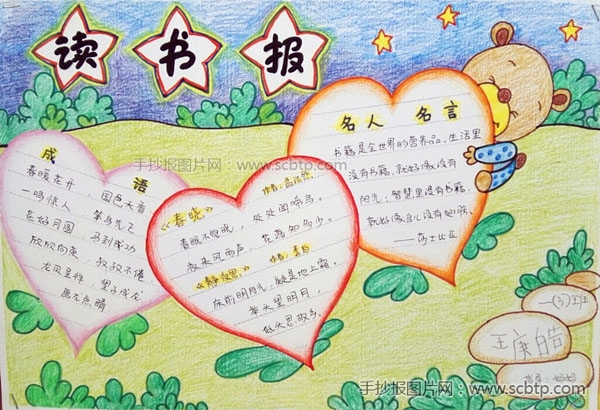 读书报
成语
春暖花开 国色天香
一鸣惊人 笨鸟先飞
花好月圆 马到成功
欣欣向荣 孜孜不倦
龙凤呈祥 望子成龙
画龙点睛
《春晓》 作者:孟浩然
春眠不觉晓，处处闻啼鸟。
夜来风雨声，花落知多少。
《静夜思》 作者:李白
床前明月光，疑是地上霜。
举头望明月，
低头思故乡。
名人 名言
书籍是全世界的营养品，生活里
没有书籍，就好像没有
阳光；智慧里没有书籍，
就好像鸟儿没有翅膀。
——莎士比亚
一(3)班
王康皓
妈妈
手抄报图片网：www.scbtp.com
手抄报图片网：www.scbtp.com